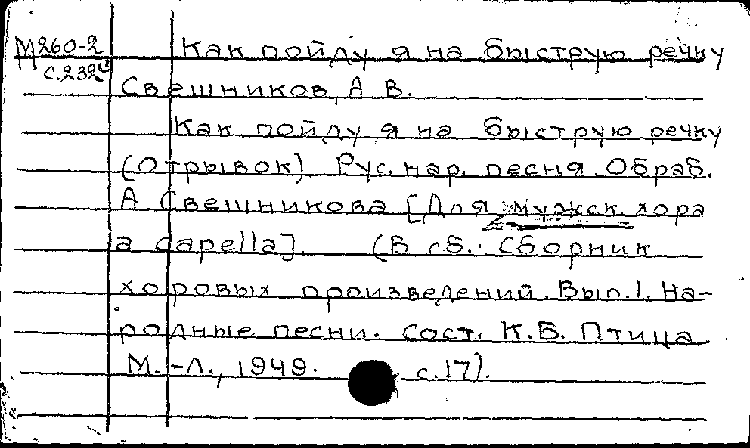 М260-2 Как пойду я на быструю речку
Свешников, А. В.
Как пойду я на быструю речку
(Отрывок). Рус. нар. песня. Обраб.
А. Свешникова [Для мужск. хора
a capella]. (В сб.: Сборник
хоровых произведений. Вып. 1. На-
родные песни. Сост. К. Б. Птица
М.-Л., 1949. с. 17).